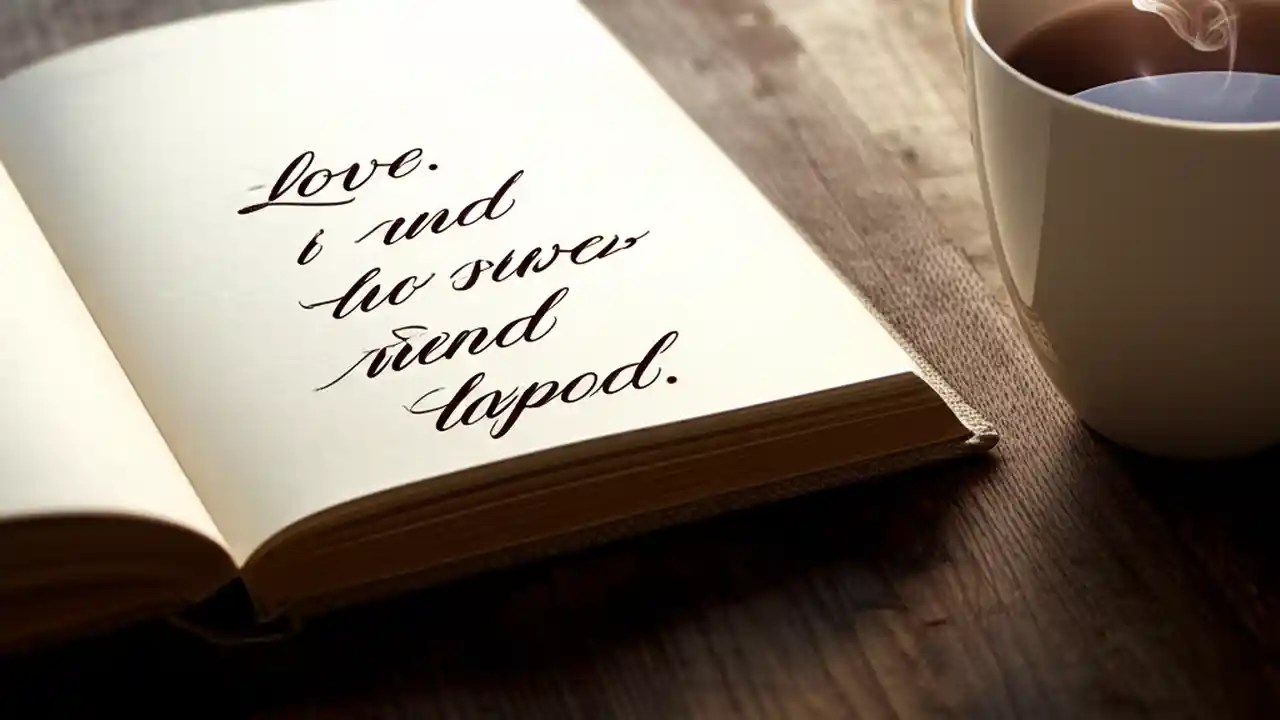 love.
i und
ho suver
riend
lapod.